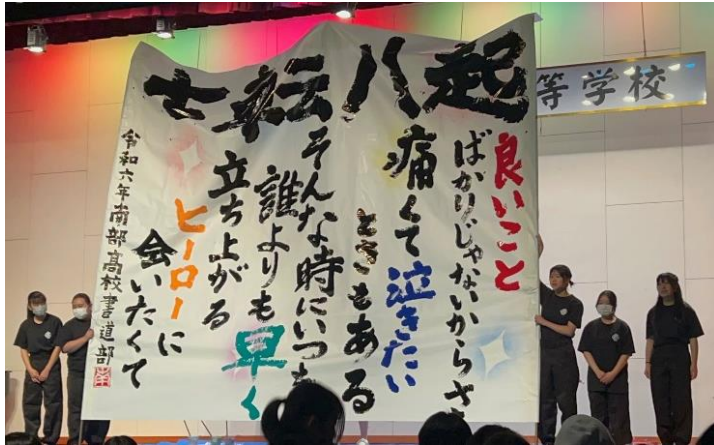 七転八起
良いこと
ばかりじゃないからさ
痛くて泣きたい
ときもある
そんな時にいつも
誰よりも早く
立ち上がる
ヒーローに
会いたくて
令和六年南部高校書道部
等学校